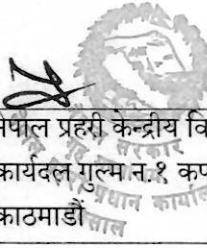 नेपाल प्रहरी केन्द्रीय वि
कार्यदल गुल्म नं.१ कप
काठमाडौं